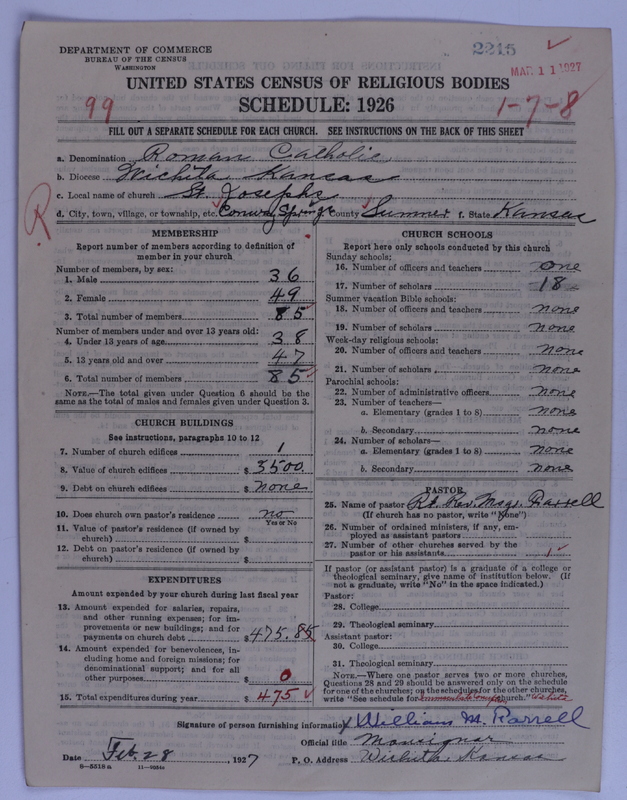 DEPARTMENT OF COMMERCE
BUREAU OF THE CENSUS
WASHINGTON
2215
MAR 11 1927
UNITED STATES CENSUS OF RELIGIOUS BODIES
99
SCHEDULE: 1926
1-7-8
FILL OUT A SEPARATE SCHEDULE FOR EACH CHURCH. SEE INSTRUCTIONS ON THE BACK OF THIS SHEET
a. Denomination Roman Catholic
b. Diocese Wichita Kansas
c. Local name of church St. Josephs
R
d. City, town, village, or township, etc. Conway Springs County Sumner f. State Kansas
MEMBERSHIP
Report number of members according to definition of
member in your church
Number of members, by sex:
1. Male 36
2. Female 49
3. Total number of members 85
Number of members under and over 13 years old:
4. Under 13 years of age 38
5. 13 years old and over 47
6. Total number of members 85
NOTE.—The total given under Question 6 should be the
same as the total of males and females given under Question 3.
CHURCH BUILDINGS
See instructions, paragraphs 10 to 12
7. Number of church edifices 1
8. Value of church edifices $ 3500.
9. Debt on church edifices $ none
10. Does church own pastor's residence no
Yes or No
11. Value of pastor's residence (if owned by
church) $
12. Debt on pastor's residence (if owned by
church) $
EXPENDITURES
Amount expended by your church during last fiscal year
13. Amount expended for salaries, repairs,
and other running expenses; for im-
provements or new buildings; and for
payments on church debt $ 475.85
14. Amount expended for benevolences, in-
cluding home and foreign missions; for
denominational support; and for all
other purposes $ 0
15. Total expenditures during year $ 475
CHURCH SCHOOLS
Report here only schools conducted by this church
Sunday schools:
16. Number of officers and teachers one
17. Number of scholars 18
Summer vacation Bible schools:
18. Number of officers and teachers none
19. Number of scholars none
Week-day religious schools:
20. Number of officers and teachers none
21. Number of scholars none
Parochial schools:
22. Number of administrative officers none
23. Number of teachers—
a. Elementary (grades 1 to 8) none
b. Secondary none
24. Number of scholars—
a. Elementary (grades 1 to 8) none
b. Secondary none
PASTOR
25. Name of pastor Rt. Rev. Msgr. Farrell
(If church has no pastor, write "None")
26. Number of ordained ministers, if any, em-
ployed as assistant pastors
27. Number of other churches served by the
pastor or his assistants 1
If pastor (or assistant pastor) is a graduate of a college or
theological seminary, give name of institution below. (If
not a graduate, write "No" in the space indicated.)
Pastor:
28. College
29. Theological seminary
Assistant pastor:
30. College
31. Theological seminary
NOTE.—Where one pastor serves two or more churches,
Questions 28 and 29 should be answered only on the schedule
for one of the churches; on the schedules for the other churches,
write "See schedule for church." Wichita
Signature of person furnishing information William M. Farrell
Official title Monsignor
Date Feb. 28, 1927 P. O. Address Wichita, Kansas
8-5518a 11-9024a